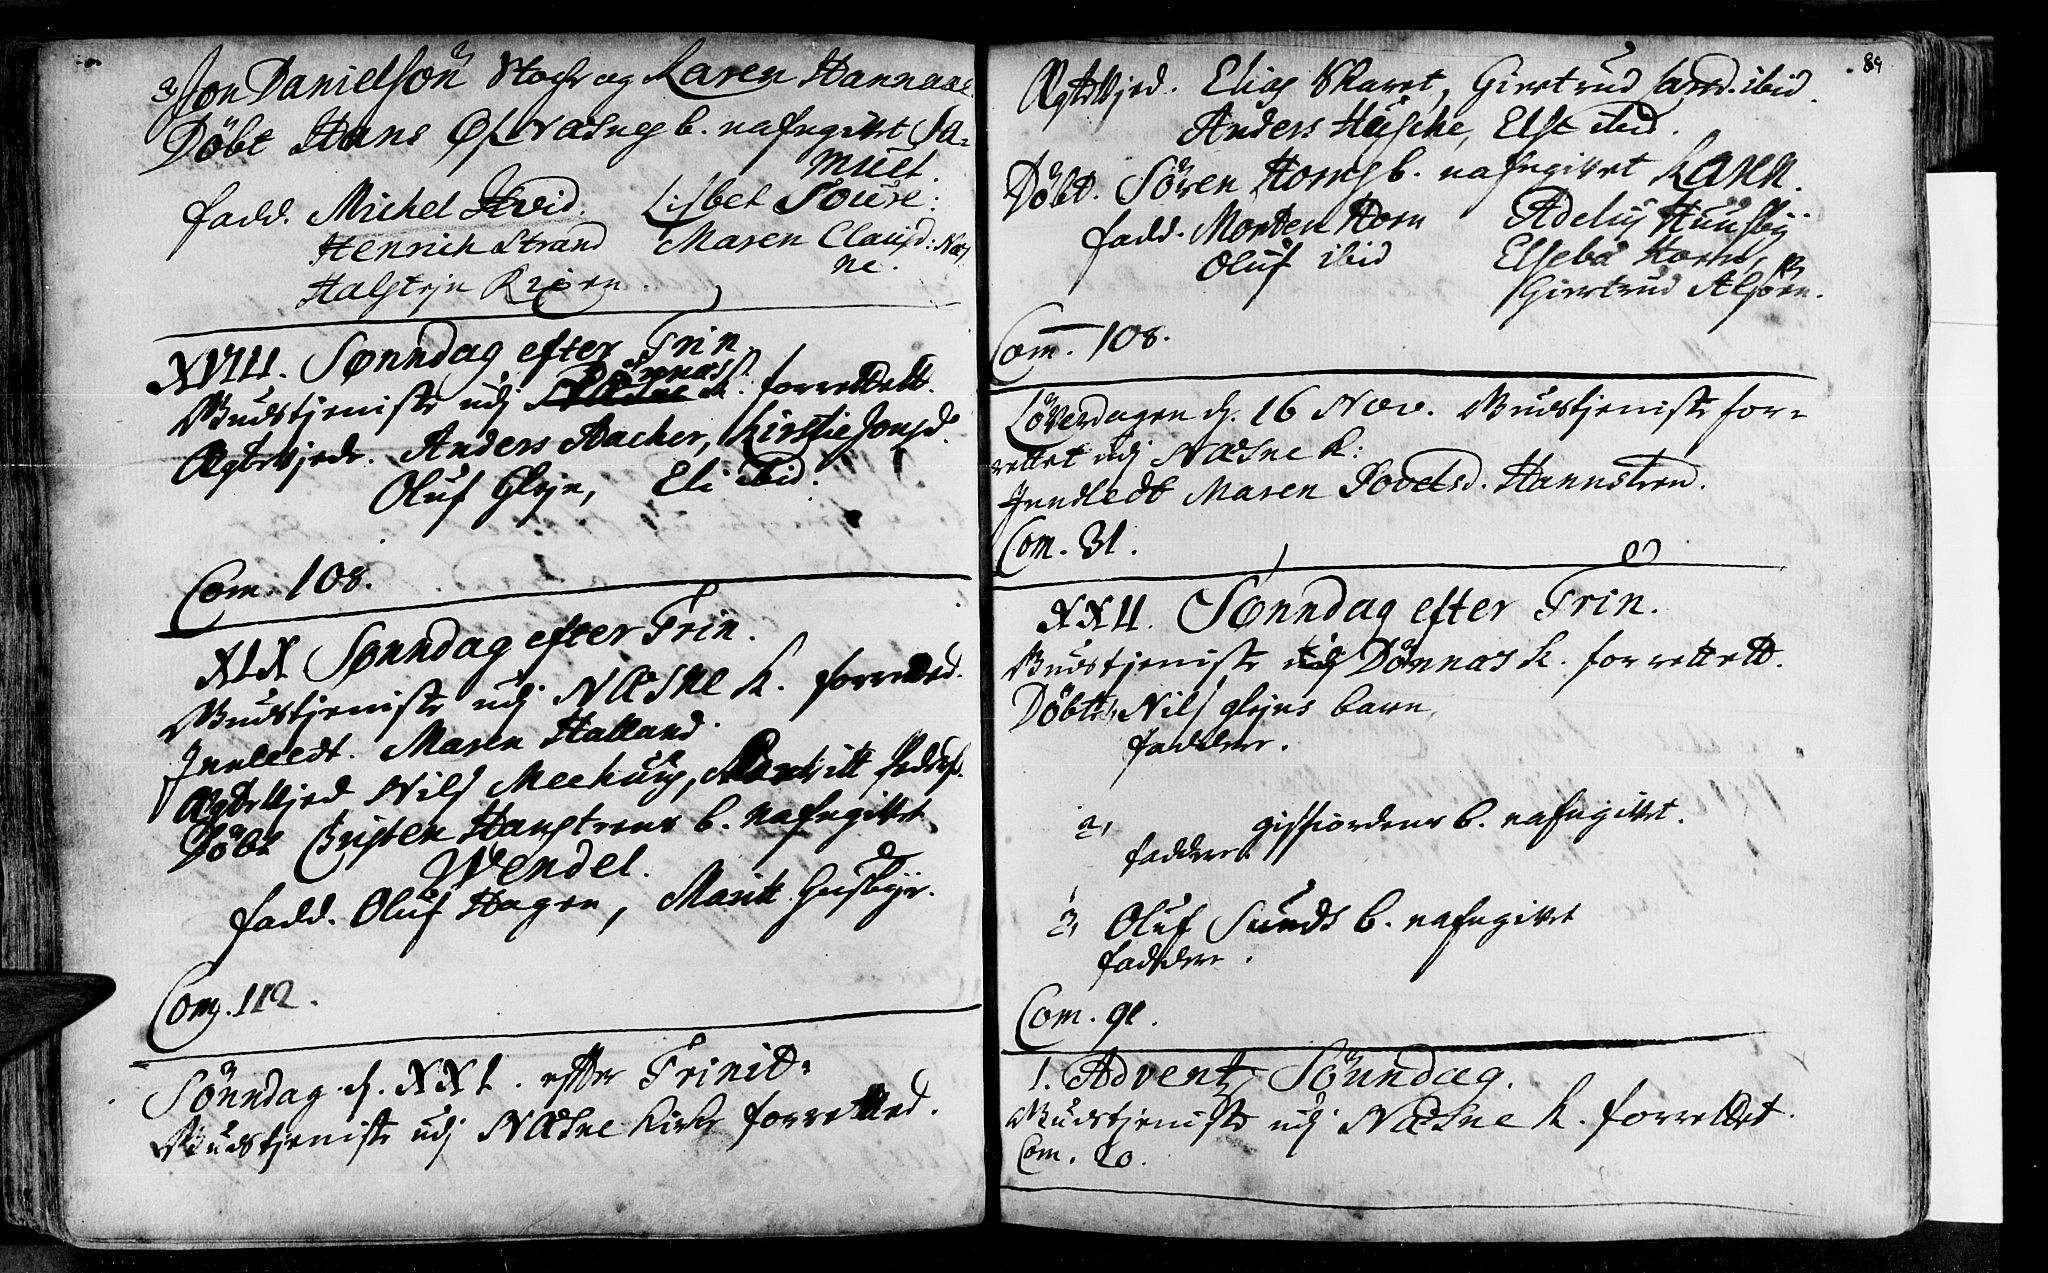 3, Jon Danielsøn Stochr og Karen Hannaae.
Døbt Hans Øf Næsnes b. nafngivet Sa=
muel.
fadd. Michel Hvid. Lisbet Soure:
Henrich Strand Maren Clausd: Næs
ne.
Halstejn Kiøen.
XVIII. Sønndag efter Trin.
Gudstjeniste udj Dønnas K. forrettedt.
Ægtevjede. Anders Aacher, Kirstie Jonsd.
Oluf Glejn, Eli ibid.
Com. 108.
XIX Sønndag efter Trin.
Gudstjeniste udj Næsne K. forretted.
Innledt. Maren Halland.
Ægtevjed Nils Meehuus, Marritt Peders.
Døbt Cristen Hanstrens b. nafngivet
Wendel.
fadd. Oluf Hagen, Maritt Husbye.
Com. 112.
Sønndag d. XXI. efter Trinit=
Gudstjeniste udj Næsne Kirke forretted.
89
Ægtevjed. Elias Skaret, Giertrud Larsd. ibid.
Anders Husche, Elst ibid.
Døbt. Søren Horns b. nafngivet Karen.
fadd. Morten Horn Adelus Huusby
Oluf ibid Elseba Horn,
Giertrud Alsøen.
Com. 108.
Løverdagen d. 16 Nov. Gudstjeniste for=
rettet udj Næsne K:
Innledt Maren Povelsd. Hannstren.
Com. 31.
XXII. Sønndag efter Trin.
Gudstjeniste udj Dönnas K. forrettett.
Døbt 1, Nils glejns barn
faddere.
2, gisfiordens b. nafngivet.
faddere.
3, Oluf Sunds b. nafngivet
faddere.
Com. 91.
1. Advents Sønndag.
Gudstjeniste udj Næsne K. forrettet.
Com. 20.